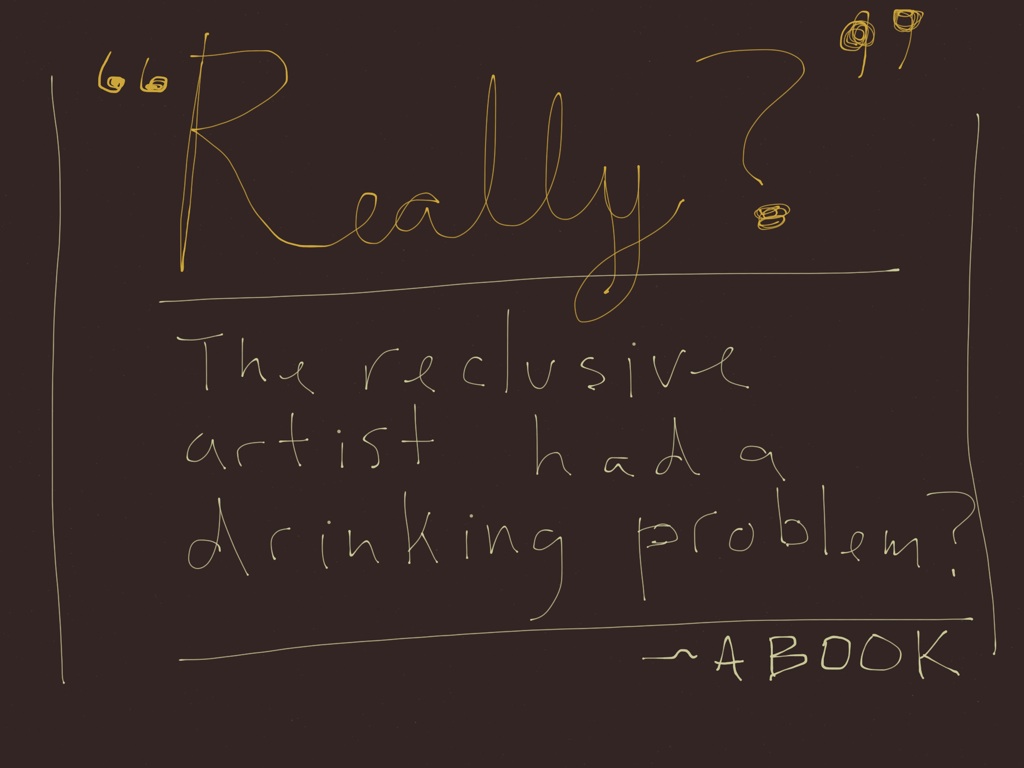 “Really?”
The reclusive
artist had a
drinking problem?
~A BOOK